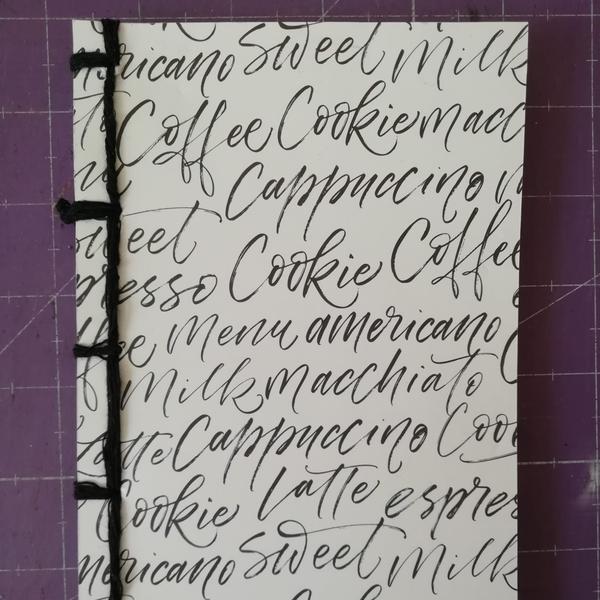 Cook
ericano Sweet Milk
Coffee Cookie macc
Cappuccino
sweet
presso Cookie Coffee
ffee menu americano
Milk macchiato
Latte Cappuccino Coo
Cookie latte espres
mericano Sweet Milk